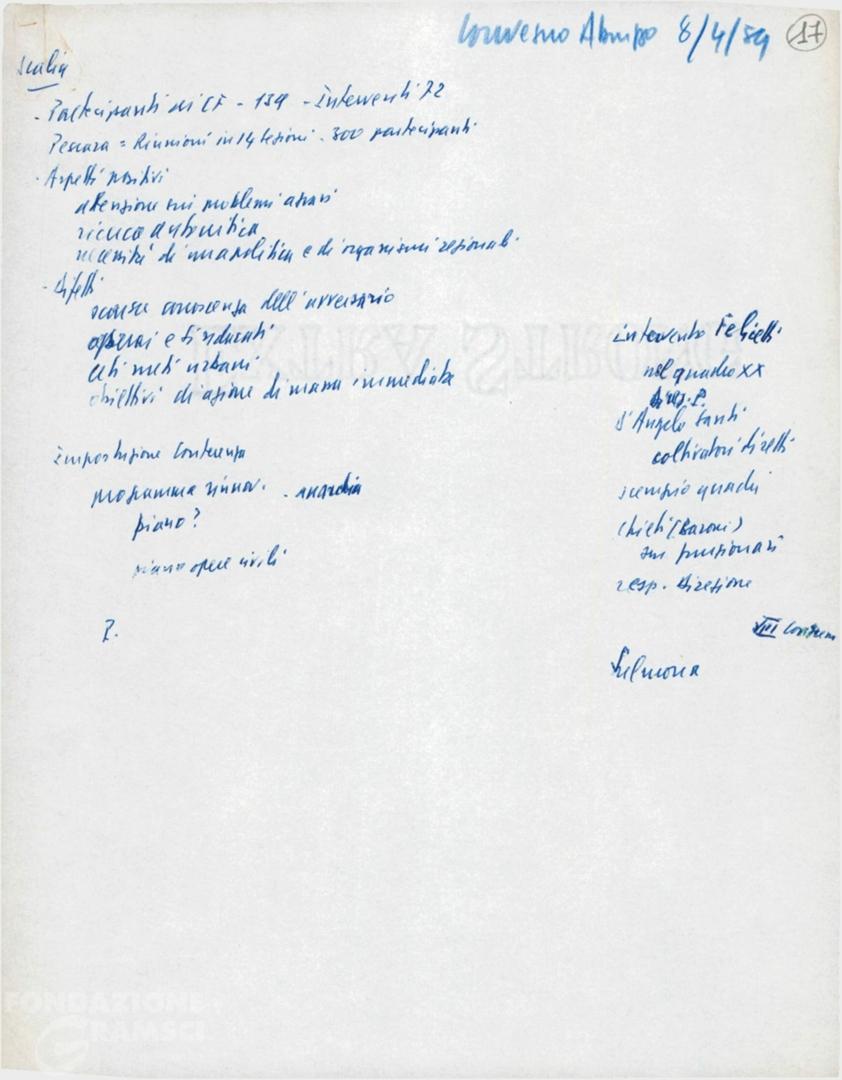 Convegno Abruzzo 8/4/59
17
Scalia
- Partecipanti ai CF - 139 - Interventi 72
Pescara = Riunioni in 14 sezioni - 300 partecipanti
- Aspetti positivi
attenzione sui problemi agrari
ricerca autocritica
necessità di una politica e di organismi regionali
- Difetti
scarsa conoscenza dell'avversario
operai e
ceti medi urbani
obiettivi di azione di massa immediata
Impostazione Conferenza
programma rinnov.
piano?
piano opere civili
intervento Felicetti
nel quadro XX
D'Angelo Santi
coltivatori diretti
quadri
Chieti (Baroni)
sui funzionari
resp. Direzione
VIII
Sulmona
EXTRA STRONG
FONDAZIONE
GRAMSCI